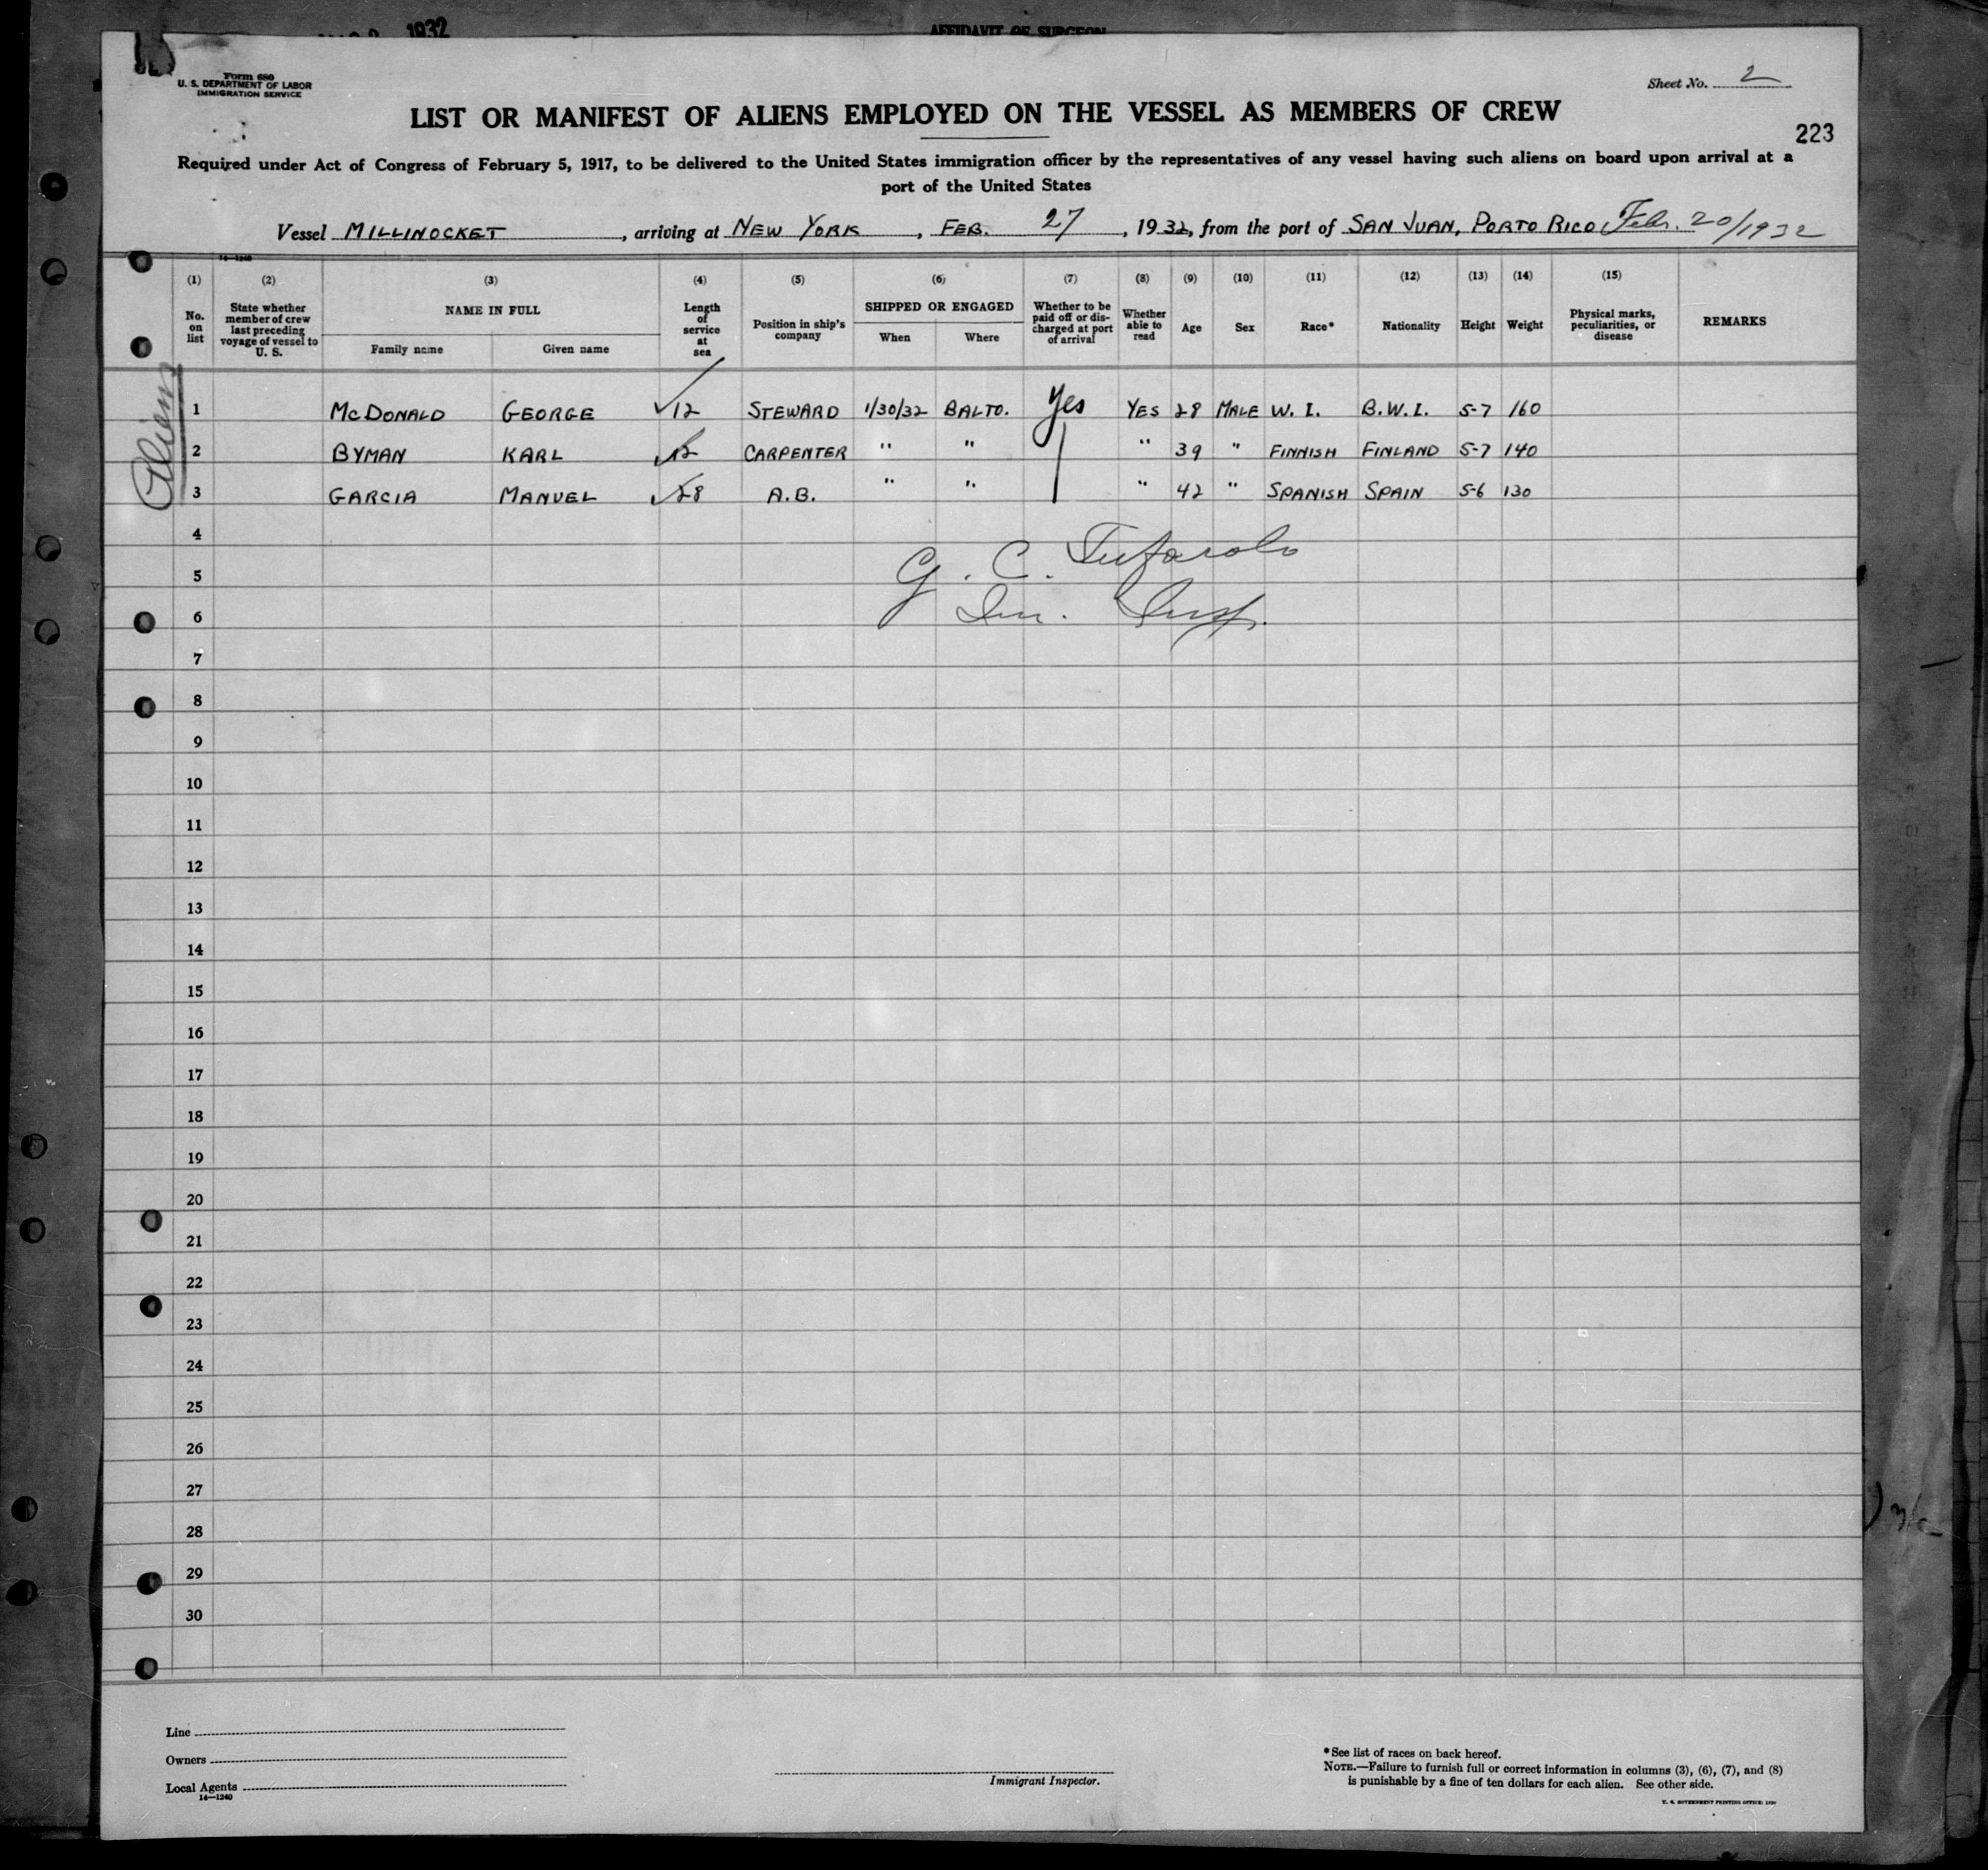 1932
AFFIDAVIT OF SURGEON
Form 680
U. S. DEPARTMENT OF LABOR
IMMIGRATION SERVICE
Sheet No. 2
LIST OR MANIFEST OF ALIENS EMPLOYED ON THE VESSEL AS MEMBERS OF CREW
223
Required under Act of Congress of February 5, 1917, to be delivered to the United States immigration officer by the representatives of any vessel having such aliens on board upon arrival at a
port of the United States
Vessel MILLINOCKET, arriving at NEW YORK, FEB. 27, 1932, from the port of SAN JUAN, PORTO RICO Feb. 20/1932
14—1240
(1) (2) (3) (4) (5) (6) (7) (8) (9) (10) (11) (12) (13) (14) (15)
No. on list
State whether member of crew last preceding voyage of vessel to U. S.
NAME IN FULL
Family name Given name
Length of service at sea
Position in ship's company
SHIPPED OR ENGAGED
When Where
Whether to be paid off or discharged at port of arrival
Whether able to read
Age
Sex
Race*
Nationality
Height
Weight
Physical marks, peculiarities, or disease
REMARKS
Aliens
1 McDONALD GEORGE 12 STEWARD 1/30/32 BALTO. Yes YES 28 MALE W. I. B.W.I. 5-7 160
2 BYMAN KARL 12 CARPENTER " " " 39 " FINNISH FINLAND 5-7 140
3 GARCIA MANUEL 28 A.B. " " " 42 " SPANISH SPAIN 5-6 130
4
5 G. C.
6 Im. Insp.
7
8
9
10
11
12
13
14
15
16
17
18
19
20
21
22
23
24
25
26
27
28
29
30
Line
Owners
Local Agents
14—1240
Immigrant Inspector.
*See list of races on back hereof.
NOTE.—Failure to furnish full or correct information in columns (3), (6), (7), and (8)
is punishable by a fine of ten dollars for each alien. See other side.
U. S. GOVERNMENT PRINTING OFFICE